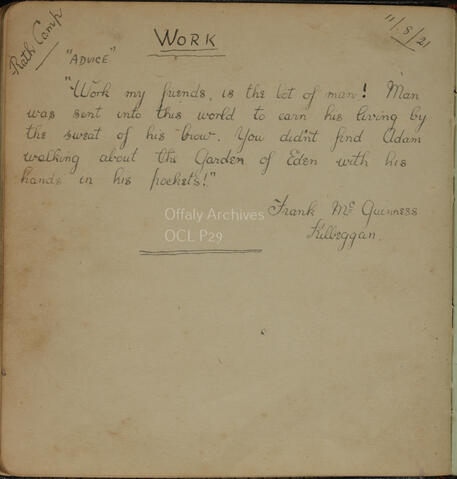 Rath Camp
11/8/21
WORK
"ADVICE"
"Work my friends, is the lot of man! Man
was sent into this world to earn his living by
the sweat of his brow. You didn't find Adam
walking about the Garden of Eden with his
hands in his pockets!"
Frank Mc Guinness
Kilbeggan.
Offaly Archives
OCL P29